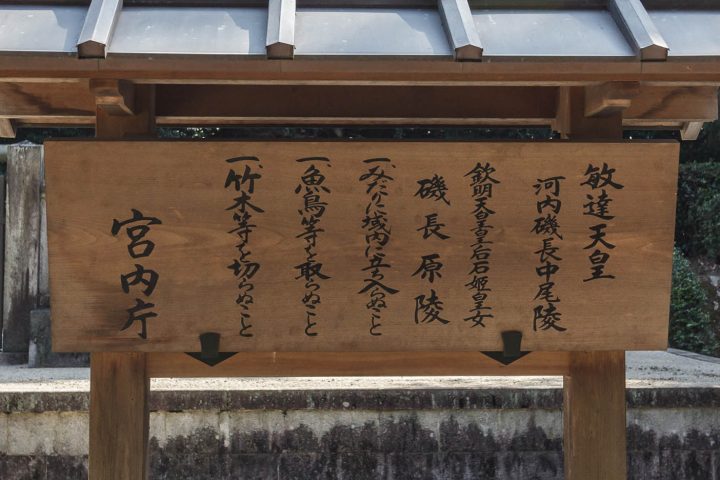 敏達天皇
河内磯長中尾陵
欽明天皇皇后石姫皇女
磯長原陵
一、みだりに域内に立ち入らぬこと
一、魚鳥等を取らぬこと
一、竹木等を切らぬこと
宮内庁